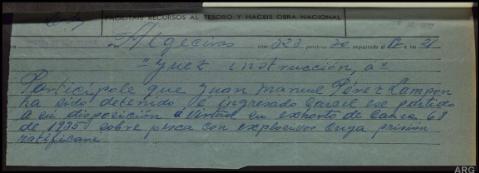 RECURSOS AL TESORO Y HACEIS OBRA NACIONAL
Algeciras 222 20
"Juez instrucción, a"
Participole que Juan Manuel Pérez Lampon
ha sido detenido e ingresado carcel ese partido
a su disposición a virtud en exhorto de causa 68
de 1935 sobre pesca con explosivos cuya prisión
ratificane
ARG